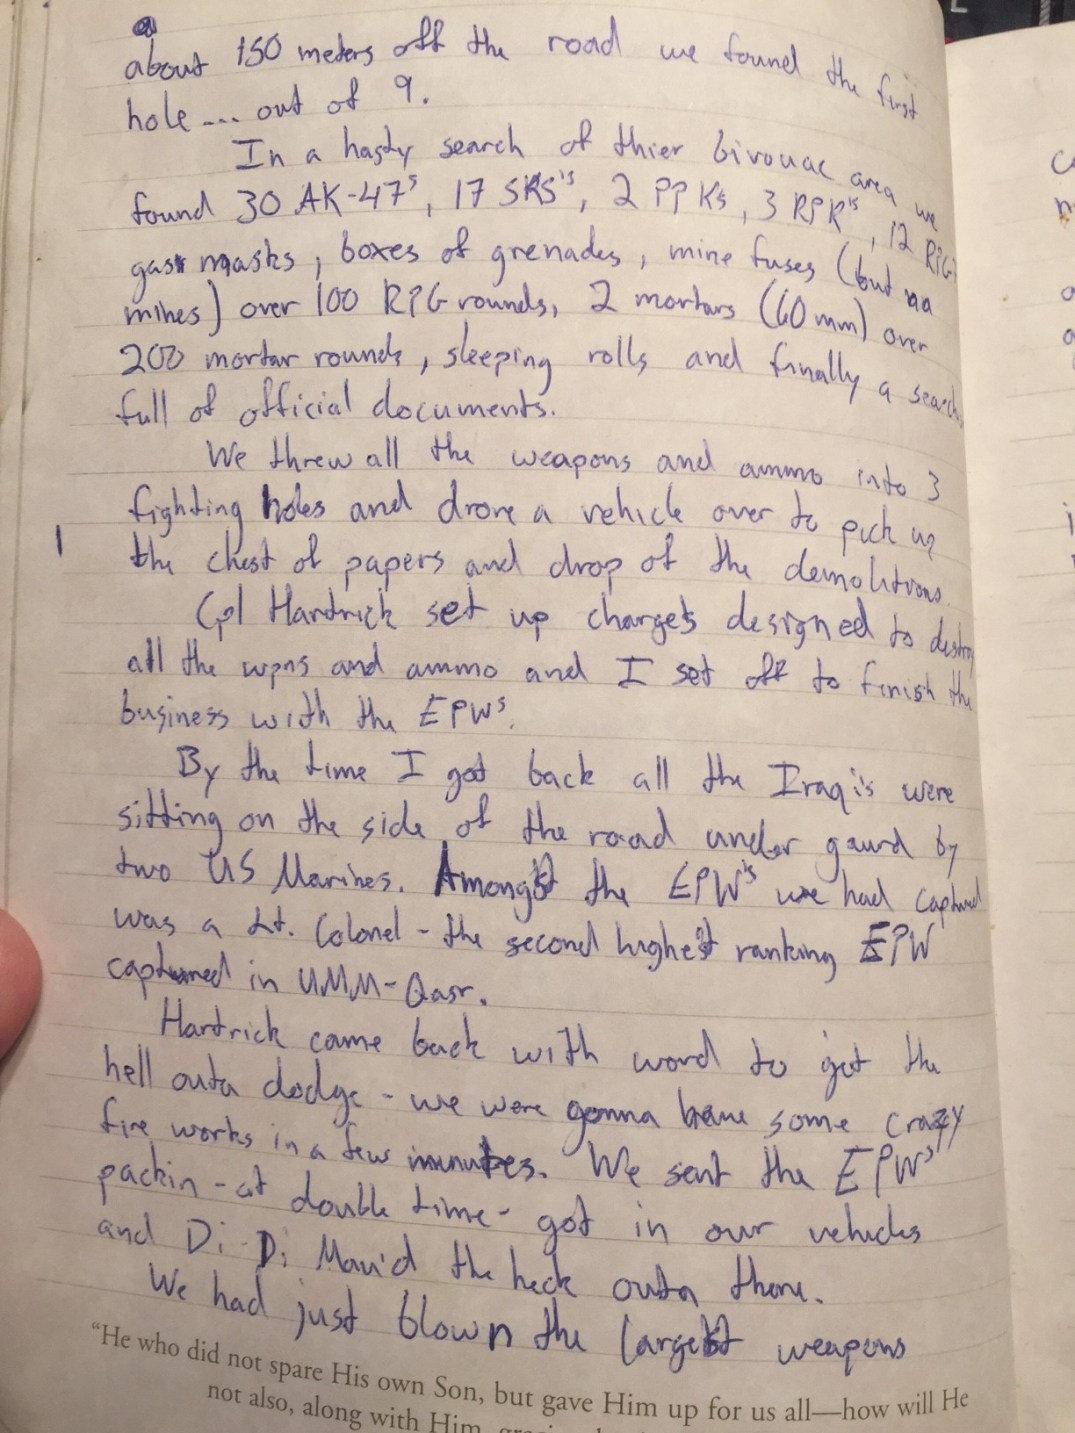 about 150 meters off the road we found the first
hole... out of 9.
In a hasty search of thier bivouac area we
found 30 AK-47s, 17 SKS's, 2 PPKs, 3 RPK's, 12 RPG
gas masks, boxes of grenades, mine fuses (but no
mines) over 100 RPG rounds, 2 mortars (60 mm) over
200 mortar rounds, sleeping rolls and finally a
full of official documents.
We threw all the weapons and ammo into 3
fighting holes and drove a vehicle over to pick up
the chest of papers and drop of the demolitions.
Cpl Hardrick set up charges designed to destroy
all the wpns and ammo and I set off to finish the
business with the EPWs.
By the time I got back all the Iraqi's were
sitting on the side of the road under gaurd by
two US Marines. Amongst the EPW's we had captured
was a Lt. Colonel - the second highest ranking EPW
captured in UMM-Qasr.
Hartrick came back with word to get the
hell outa dodge - we were gonna have some crazy
fire works in a few minutes. We sent the EPWs'
packin - at double time - got in our vehicles
and Di-Di Mau'd the heck outa there.
We had just blown the largest weapons
"He who did not spare His own Son, but gave Him up for us all—how will He
not also, along with Him,